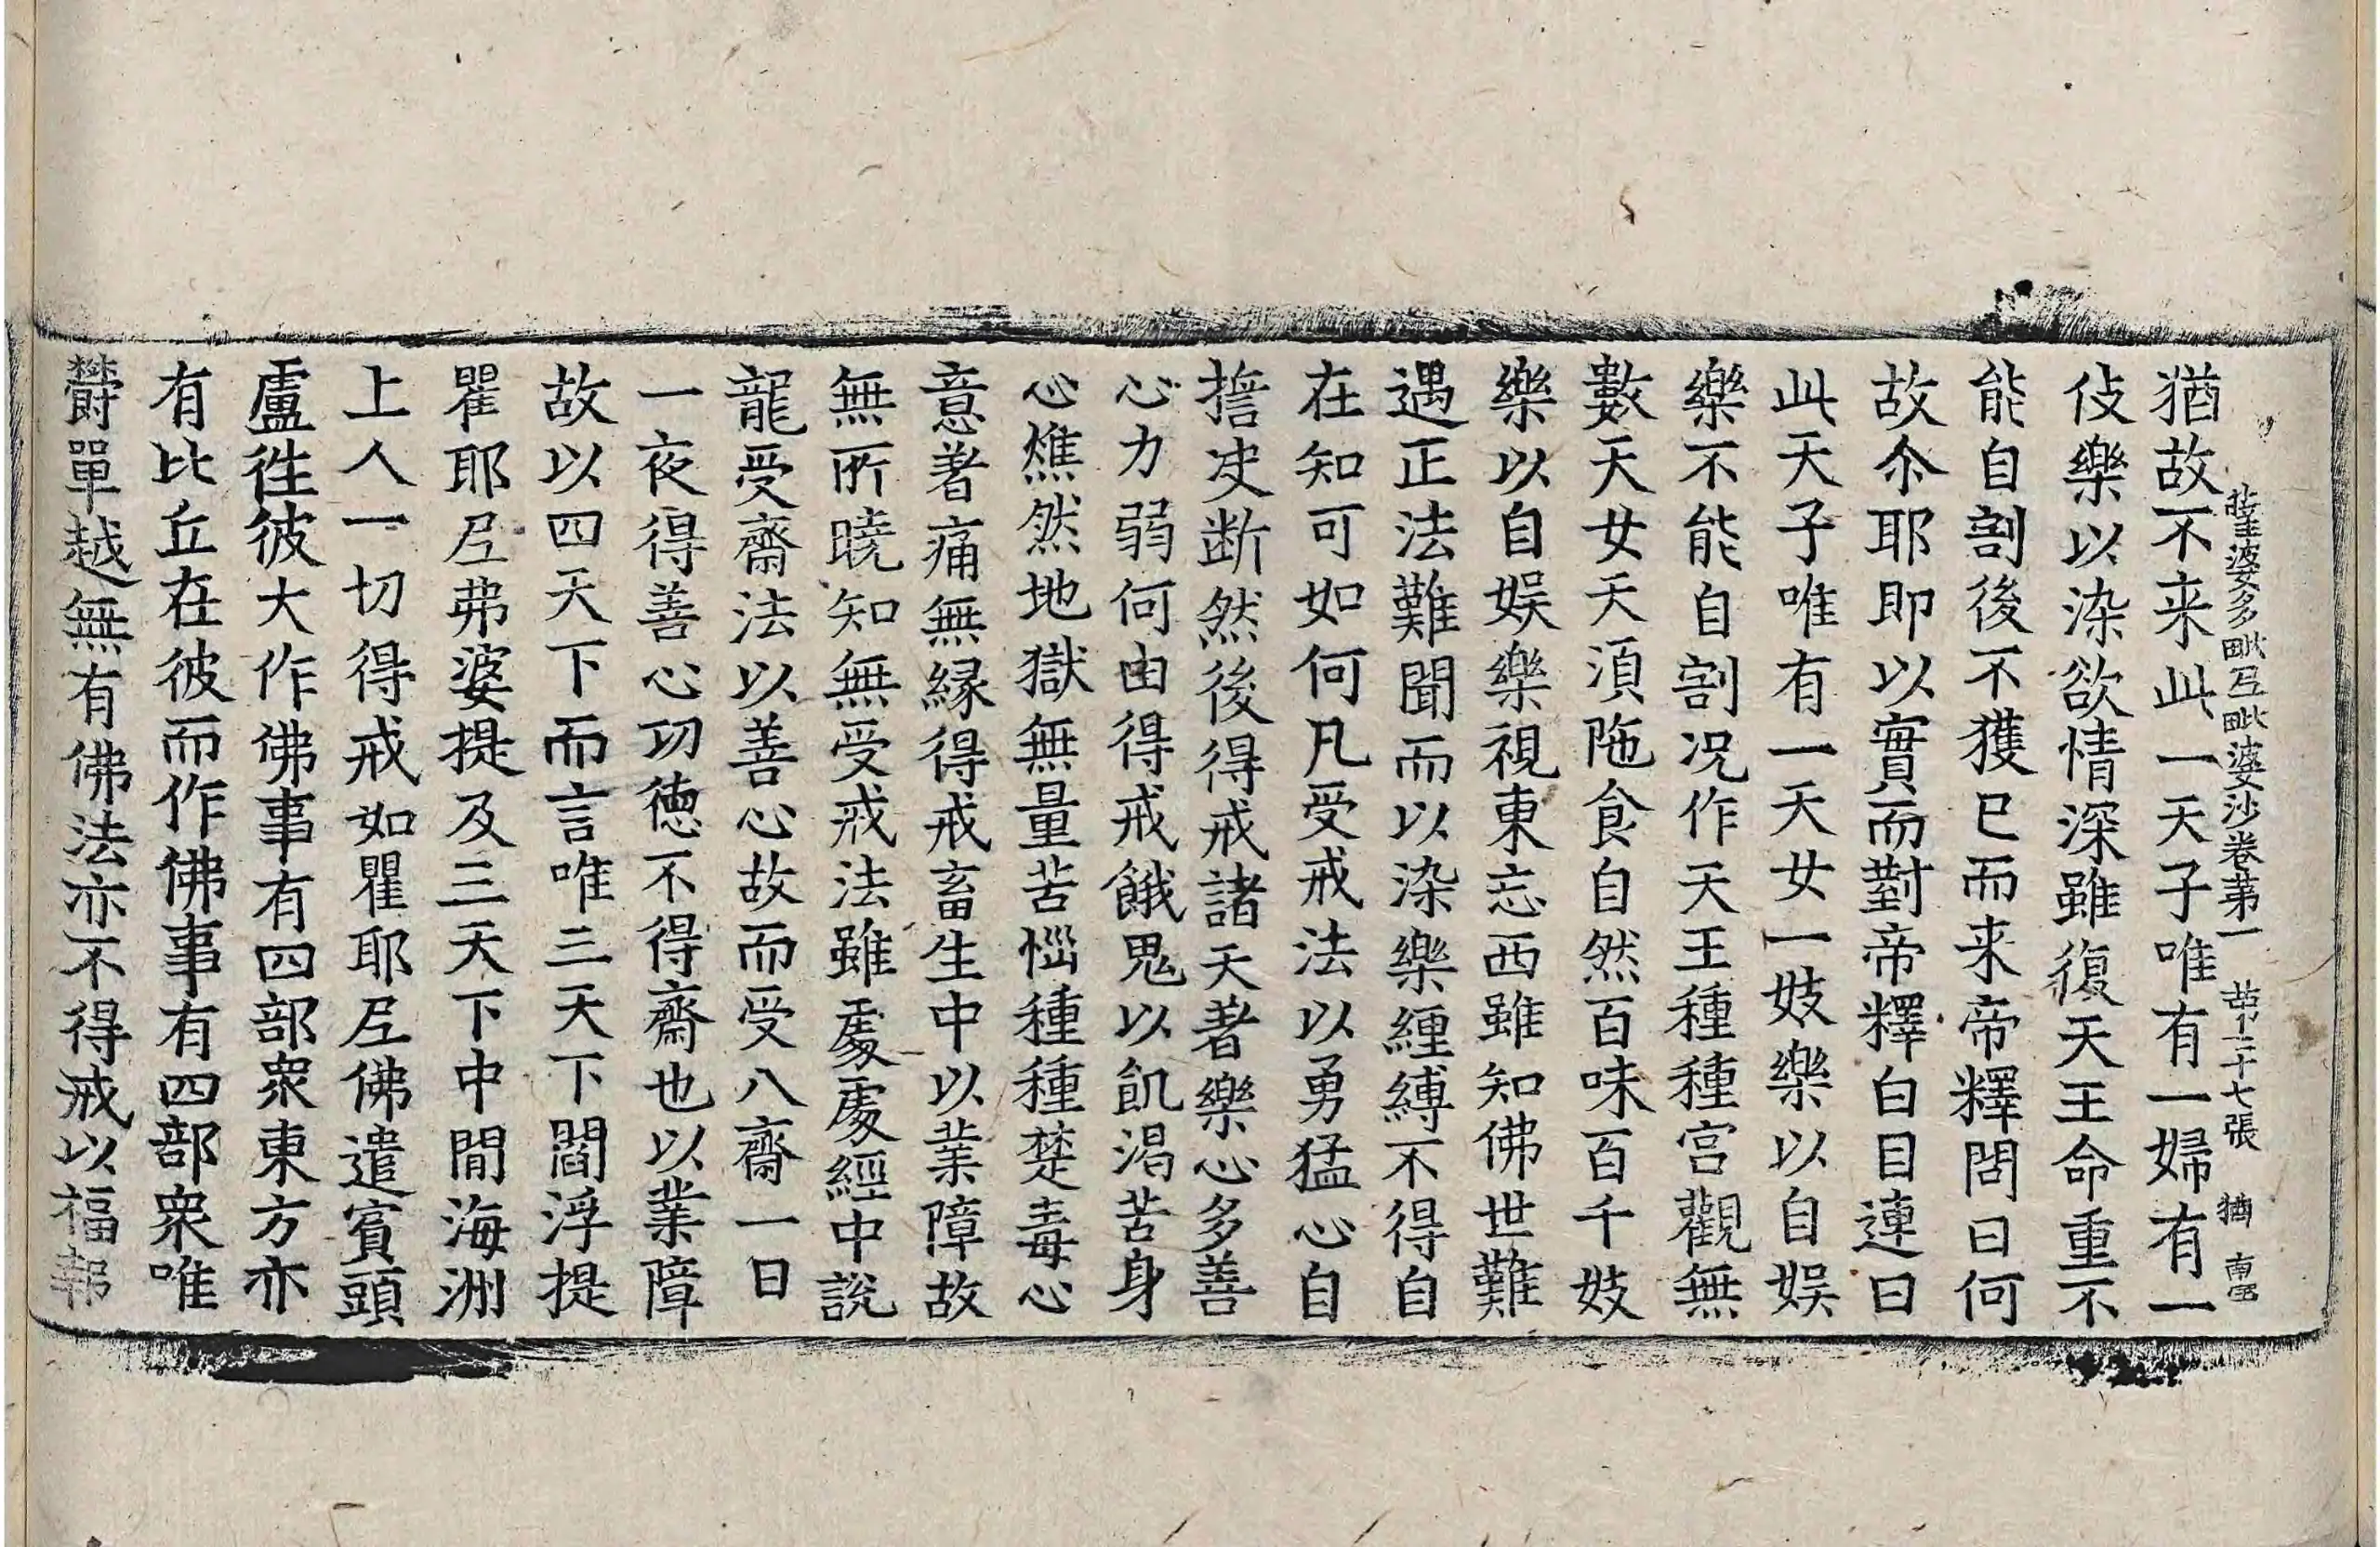 薩婆多毗尼毗婆沙卷第一　第二十七張　猶　南𡨥
猶故不来此一天子唯有一婦有一
伎樂以染欲情深雖復天王命重不
能自割後不獲已而来帝釋問曰何
故尒耶即以實而對帝釋白目連曰
此天子唯有一天女一妓樂以自娱
樂不能自割况作天王種種宫觀無
數天女天湏陁食自然百味百千妓
樂以自娱樂視東忘西雖知佛世難
遇正法難聞而以染樂纏縛不得自
在知可如何凡受戒法以勇猛心自
擔决断然後得戒諸天著樂心多善
心力弱何由得戒餓鬼以飢渴苦身
心燋然地獄無量苦惱種種楚毒心
意著痛無縁得戒畜生中以業障故
無所曉知無受戒法雖處處經中說
龍受齋法以善心故而受八齋一日
一夜得善心功徳不得齋也以業障
故以四天下而言唯三天下閻浮提
瞿耶尼弗婆提及三天下中間海洲
上人一切得戒如瞿耶尼佛遣賓頭
盧徃彼大作佛事有四部衆東方亦
有比丘在彼而作佛事有四部衆唯
欝單越無有佛法亦不得戒以福報